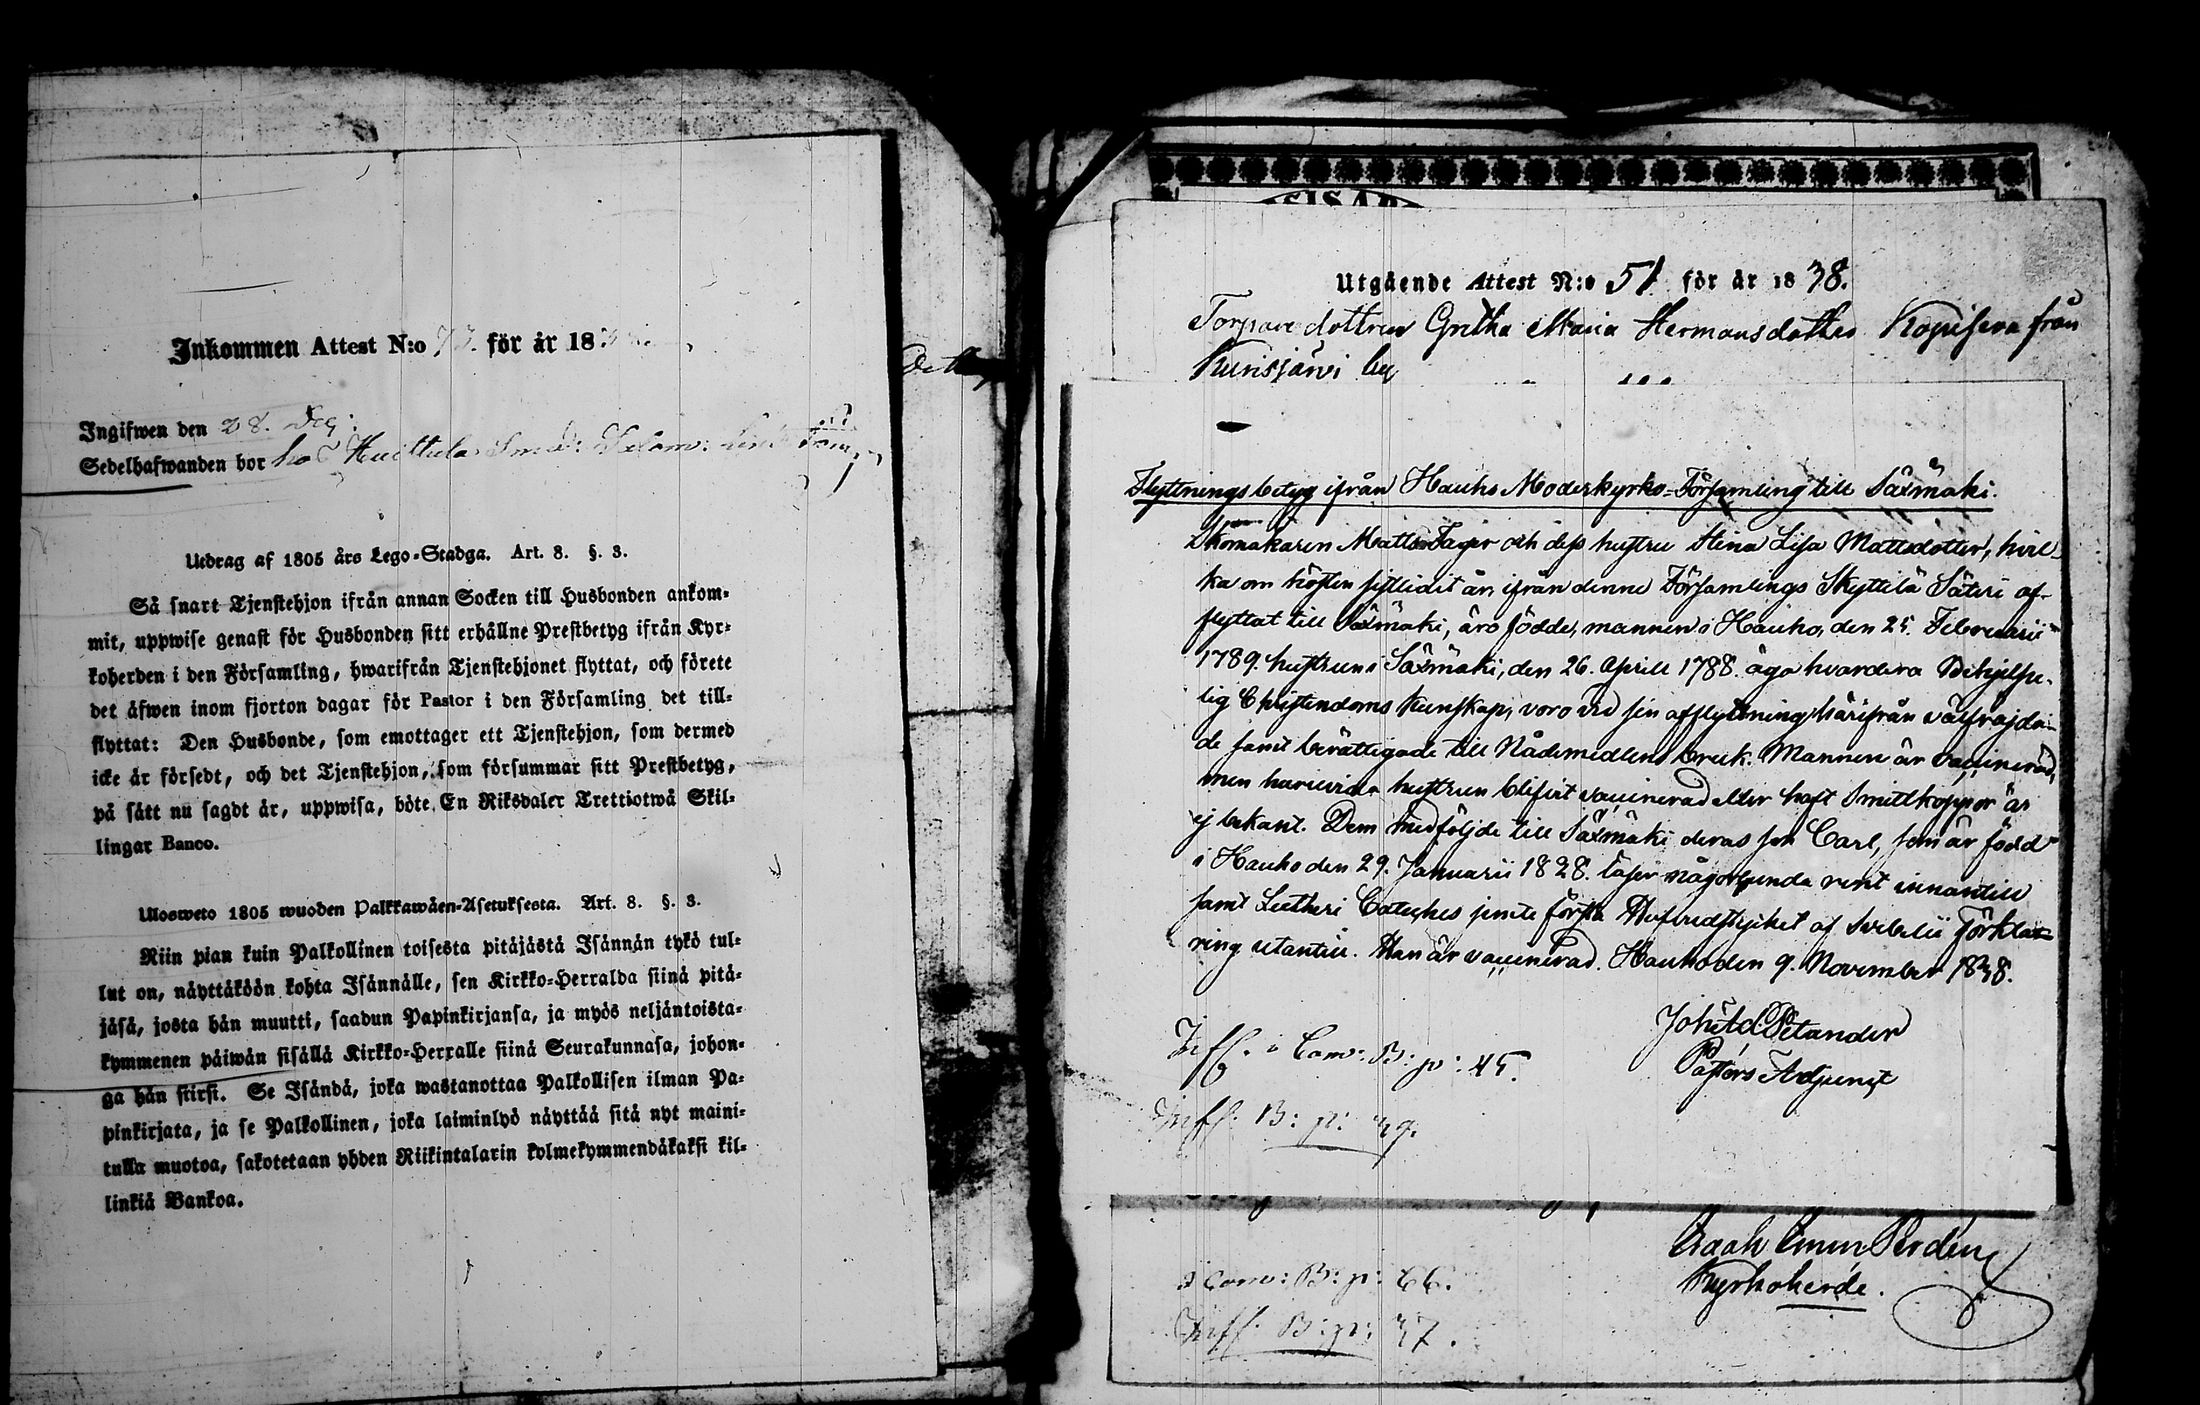 Inkommen Attest N:o 73. för år 18
Ingifwen den 28. Dec:
Sedelhafwanden bor hos Huittula
Utdrag af 1805 års Lego-Stadga. Art. 8. §. 3.
Så snart Tjenstehjon ifrån annan Socken till Husbonden ankom-
mit, uppwise genast för Husbonden sitt erhållne Prestbetyg ifrån Kyr-
koherden i den Församling, hwarifrån Tjenstehjonet flyttat, och förete
det äfwen inom fjorton dagar för Pastor i den Församling det till-
flyttat: Den Husbonde, som emottager ett Tjenstehjon, som dermed
icke är försedt, och det Tjenstehjon, som försummar sitt Prestbetyg,
på sätt nu sagdt är, uppwisa, böte En Riksdaler Trettiotwå Skil-
lingar Banco.
Ulosweto 1805 wuoden Palkkawäen-Asetuksesta. Art. 8. §. 3.
Niin pian kuin Palkollinen toisesta pitäjästä Isännän tykö tul-
lut on, näyttäköön kohta Isännälle, sen Kirkko-Herralda siinä pitä-
jäsä, josta hän muutti, saadun Papinkirjansa, ja myös neljäntoista-
kymmenen päiwän sisällä Kirkko-Herralle siinä Seurakunnasa, johon-
ga hän siirsi. Se Isändä, joka wastanottaa Palkollisen ilman Pa-
pinkirjata, ja se Palkollinen, joka laiminlyö näyttää sitä nyt maini-
tulla muotoa, sakotetaan yhden Riikintalarin kolmekymmendäkaksi kil-
linkiä Bankoa.
Utgående Attest N:o 51 för år 1838.
Torpare dottren Gretha Maria Hermansdotter från
Kurisjärvi by
Flyttningsbetyg ifrån Hauho Moderkyrko-Församling till Säxmäki.
Skomakaren Matts Fager och dess hustru Stina Lisa Mattsdotter, hvil-
ka om hösten sistledit år, ifrån denne Församlings Skyttilä Säteri af-
flyttat till Säxmäki, äro födde, mannen i Hauho, den 25. Februarii
1789. hustrun i Säxmäki, den 26. Aprill 1788. äga hvardera Behjelpe-
lig Christendoms Kunskap, voro vid sin afflyttning härifrån väl frejda-
de samt berättigade till Nådemedlens bruk. Mannen är vaccinerad,
men huruvida hustrun blifvit vaccinerad eller haft Smittkoppor är
ej bekant. Dem medföljde till Säxmäki deras son Carl, som är född
i Hauho den 29. Januarii 1828. läser någorlunda rent innantill
samt Lutheri Cateches jemte första Hufvudstycket af Svebelii Förkla-
ring utantill. Han är vaccinerad. Hauho den 9. November 1838.
Petander
Pastors Adjunct
Inff. i Comv: B: p: 45.
Inff: B: p: 39.
Kyrkoherde.
i Comv: B: p: 66.
Inff: B: p: 37.